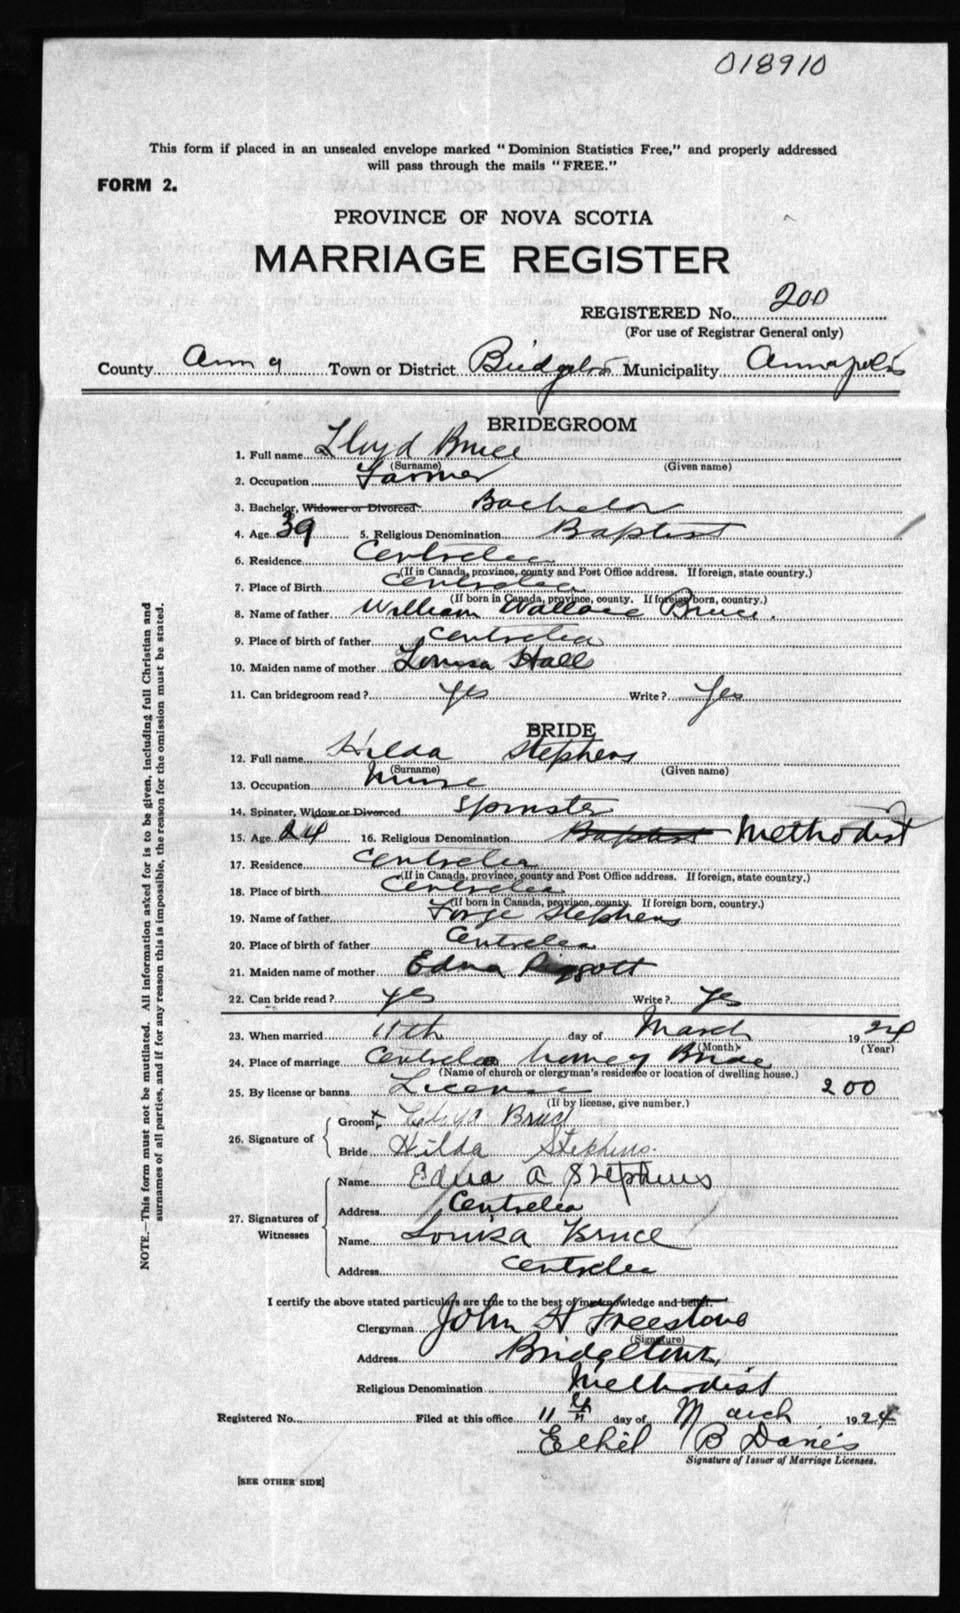 018910
This form if placed in an unsealed envelope marked "Dominion Statistics Free," and properly addressed
will pass through the mails "FREE."
FORM 2.
PROVINCE OF NOVA SCOTIA
MARRIAGE REGISTER
REGISTERED No. 200
(For use of Registrar General only)
County Anna Town or District Bridgetown Municipality Annapolis
BRIDEGROOM
1. Full name Lloyd Bruce
(Surname) (Given name)
2. Occupation Farmer
3. Bachelor, Widower or Divorced Bachelor
4. Age 39 5. Religious Denomination Baptist
6. Residence Centrelea
(If in Canada, province, county and Post Office address. If foreign, state country.)
7. Place of Birth Centrelea
(If born in Canada, province, county. If foreign born, country.)
8. Name of father William Wallace Bruce.
9. Place of birth of father Centrelea
10. Maiden name of mother Louisa Hall
11. Can bridegroom read? Yes Write? Yes
BRIDE
12. Full name Hilda Stephens
(Surname) (Given name)
13. Occupation Nurse
14. Spinster, Widow or Divorced Spinster
15. Age 24 16. Religious Denomination Baptist Methodist
17. Residence Centrelea
(If in Canada, province, county and Post Office address. If foreign, state country.)
18. Place of birth Centrelea
(If born in Canada, province, county. If foreign born, country.)
19. Name of father Forge Stephens
20. Place of birth of father Centrelea
21. Maiden name of mother Edna Piggott
22. Can bride read? yes Write? Yes
23. When married 11th day of March 1924
(Month) (Year)
24. Place of marriage Centrelea home of Bride
(Name of church or clergyman's residence or location of dwelling house.)
25. By license or banns License 200
(If by license, give number.)
26. Signature of
Groom x Lloyd Bruce
Bride Hilda Stephens.
27. Signatures of Witnesses
Name Edna A Stephens
Address Centrelea
Name Louisa Bruce
Address Centrelea
I certify the above stated particulars are true to the best of my knowledge and belief.
Clergyman John H Freestone
(Signature)
Address Bridgetown,
Religious Denomination Methodist
Registered No. Filed at this office 11th day of March 1924
Ethel B Danes
Signature of Issuer of Marriage Licenses.
[SEE OTHER SIDE]
NOTE.—This form must not be mutilated. All information asked for is to be given, including full Christian and
surnames of all parties, and if for any reason this is impossible, the reason for the omission must be stated.